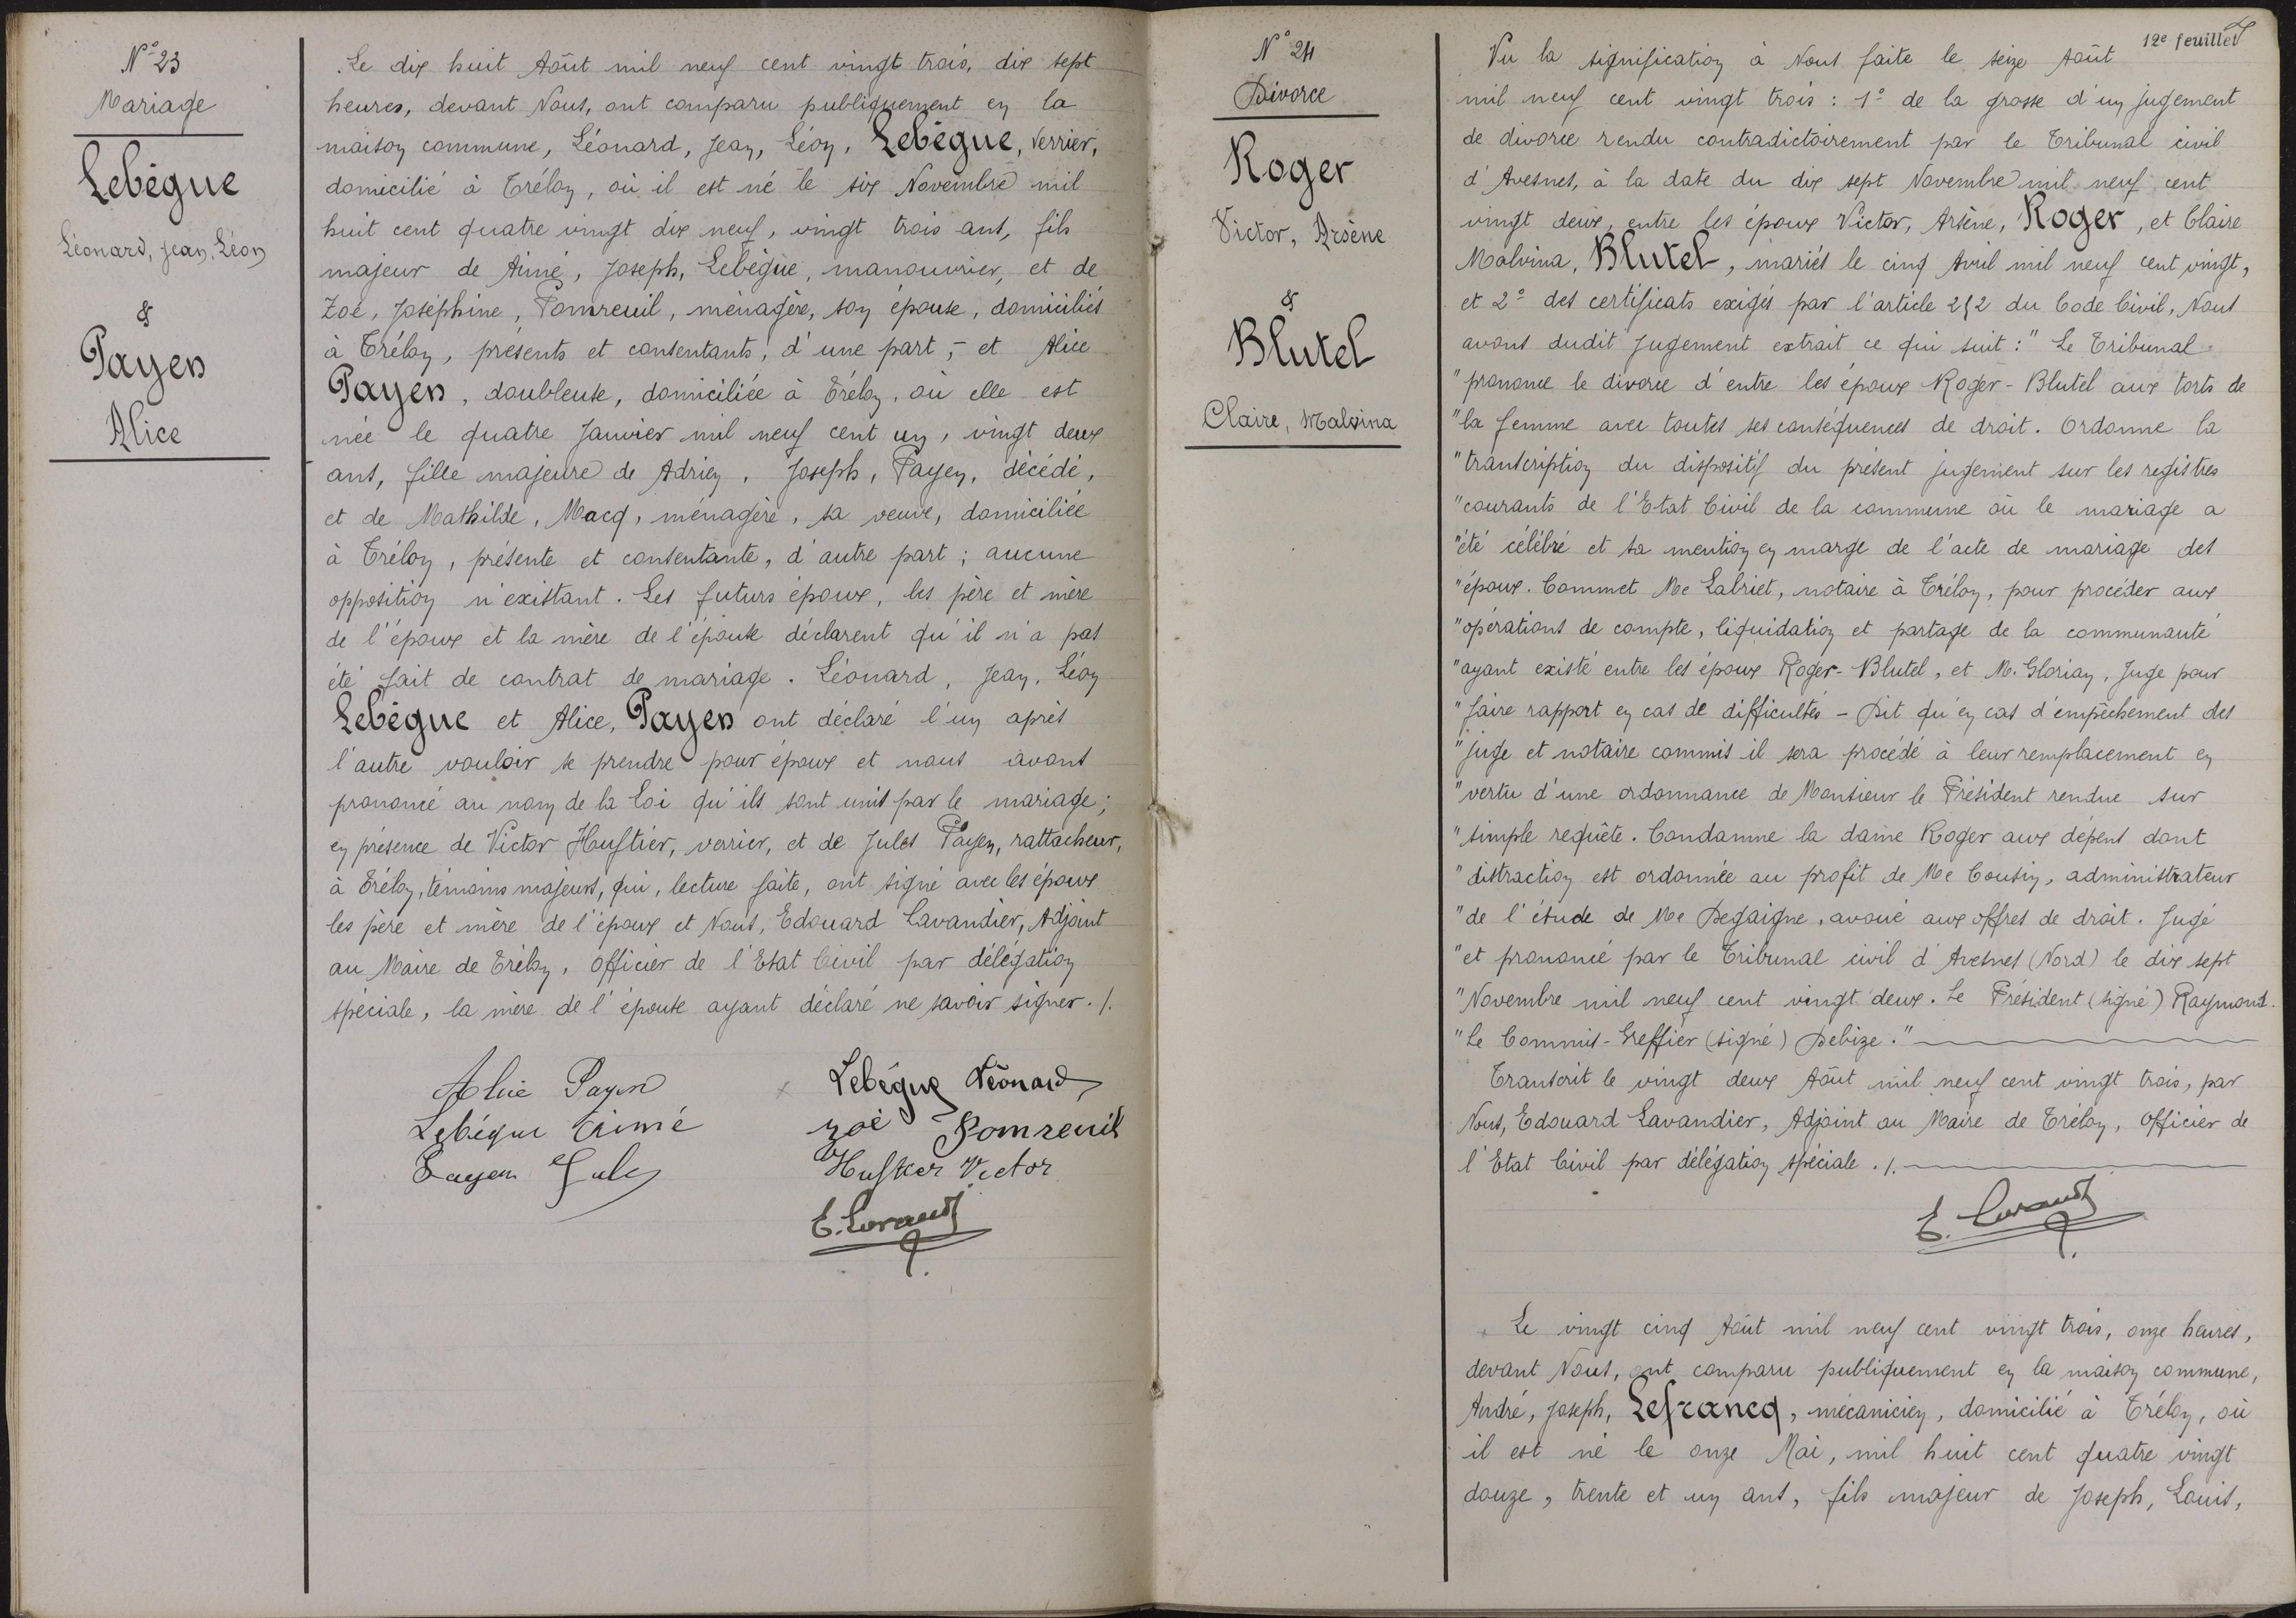 N° 23
Mariage
Lebègue
Léonard, Jean, Léon
&
Payen
Alice
Le dix huit Août mil neuf cent vingt trois, dix sept
heures, devant Nous, ont comparu publiquement en la
maison commune, Léonard, Jean, Léon, Lebègue, verrier,
domicilié à Trélon, où il est né le six Novembre mil
huit cent quatre vingt dix neuf, vingt trois ans, fils
majeur de Aimé, Joseph, Lebègue, manouvrier, et de
Zoé, Joséphine, Pomreuil, ménagère, son épouse, domiciliés
à Trélon, présents et consentants, d'une part, - et Alice
Payen, doubleuse, domiciliée à Trélon, où elle est
née le quatre Janvier mil neuf cent un, vingt deux
ans, fille majeure de Adrien, Joseph, Payen, décédé,
et de Mathilde, Macq, ménagère, sa veuve, domiciliée
à Trélon, présente et consentante, d'autre part ; aucune
opposition n'existant. Les futurs époux, les père et mère
de l'époux et la mère de l'épouse déclarent qu'il n'a pas
été fait de contrat de mariage. Léonard, Jean, Léon
Lebègue et Alice, Payen ont déclaré l'un après
l'autre vouloir se prendre pour époux et nous avons
prononcé au nom de la Loi qu'ils sont unis par le mariage ;
en présence de Victor Hustier, verrier, et de Jules Payen, rattacheur,
à Trélon, témoins majeurs, qui, lecture faite, ont signé avec les époux
les père et mère de l'époux et Nous, Edouard Lavandier, Adjoint
au Maire de Trélon, Officier de l'Etat Civil par délégation
spéciale, la mère de l'épouse ayant déclaré ne savoir signer. /.
Alice Payen Lebègue Léonard
Lebègue Aimé Zoé Pomreuil
Payen Jules Victor
E. Lavandi
12e feuillet
N° 24
Divorce
Roger
Victor, Arsène
&
Blutel
Claire, Malvina
Vu la signification à Nous faite le seize Août
mil neuf cent vingt trois : 1° de la grosse d'un jugement
de divorce rendu contradictoirement par le Tribunal civil
d'Avesnes, à la date du dix sept Novembre mil neuf cent
vingt deux, entre les époux Victor, Arsène, Roger, et Claire
Malvina, Blutel, mariés le cinq Avril mil neuf cent vingt,
et 2° des certificats exigés par l'article 252 du Code Civil, Nous
avons dudit jugement extrait ce qui suit : " Le Tribunal
" prononce le divorce d'entre les époux Roger - Blutel aux torts de
" la femme avec toutes ses conséquences de droit. Ordonne la
" transcription du dispositif du présent jugement sur les registres
" courants de l'Etat Civil de la commune où le mariage a
" été célébré et sa mention en marge de l'acte de mariage des
" époux. Commet Me Labriet, notaire à Trélon, pour procéder aux
" opérations de compte, liquidation et partage de la communauté
" ayant existé entre les époux Roger - Blutel, et M. Glorian, Juge pour
" faire rapport en cas de difficultés - Dit qu'en cas d'empêchement des
" juge et notaire commis il sera procédé à leur remplacement en
" vertu d'une ordonnance de Monsieur le Président rendue sur
" simple requête. Condamne la dame Roger aux dépens dont
" distraction est ordonnée au profit de Me Cousin, administrateur
" de l'étude de Me Degaigne, avoué aux offres de droit. Jugé
" et prononcé par le Tribunal civil d'Avesnes (Nord) le dix sept
" Novembre mil neuf cent vingt deux. Le Président (signé) Raymond.
" Le Commis - Greffier (signé) Debize. "
Transcrit le vingt deux Août mil neuf cent vingt trois, par
Nous, Edouard Lavandier, Adjoint au Maire de Trélon, Officier de
l'Etat Civil par délégation spéciale. /.
E. Lavandi
Le vingt cinq Août mil neuf cent vingt trois, onze heures,
devant Nous, ont comparu publiquement en la maison commune,
André, Joseph, Lefrancq, mécanicien, domicilié à Trélon, où
il est né le onze Mai, mil huit cent quatre vingt
douze, trente et un ans, fils majeur de Joseph, Louis,